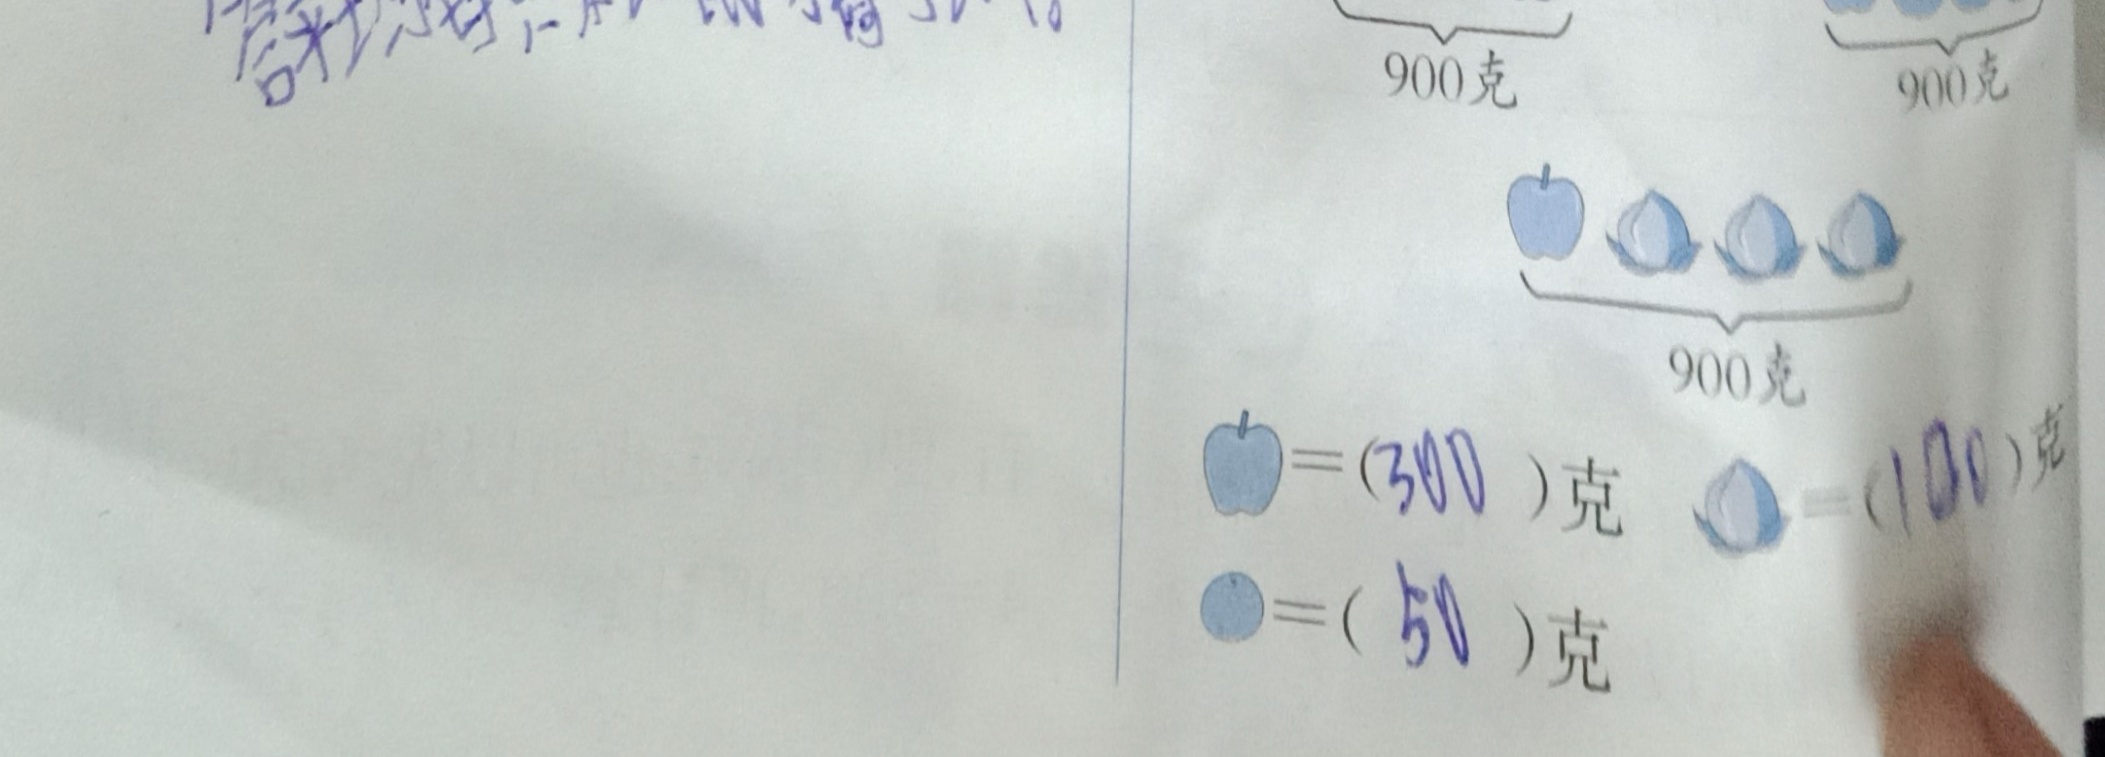 900克 900克
900克
=(300)克 =(100)克
=(50)克